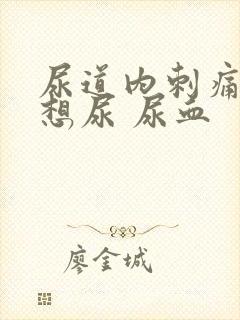 尿道内刺痛
想尿 尿血
廖金城